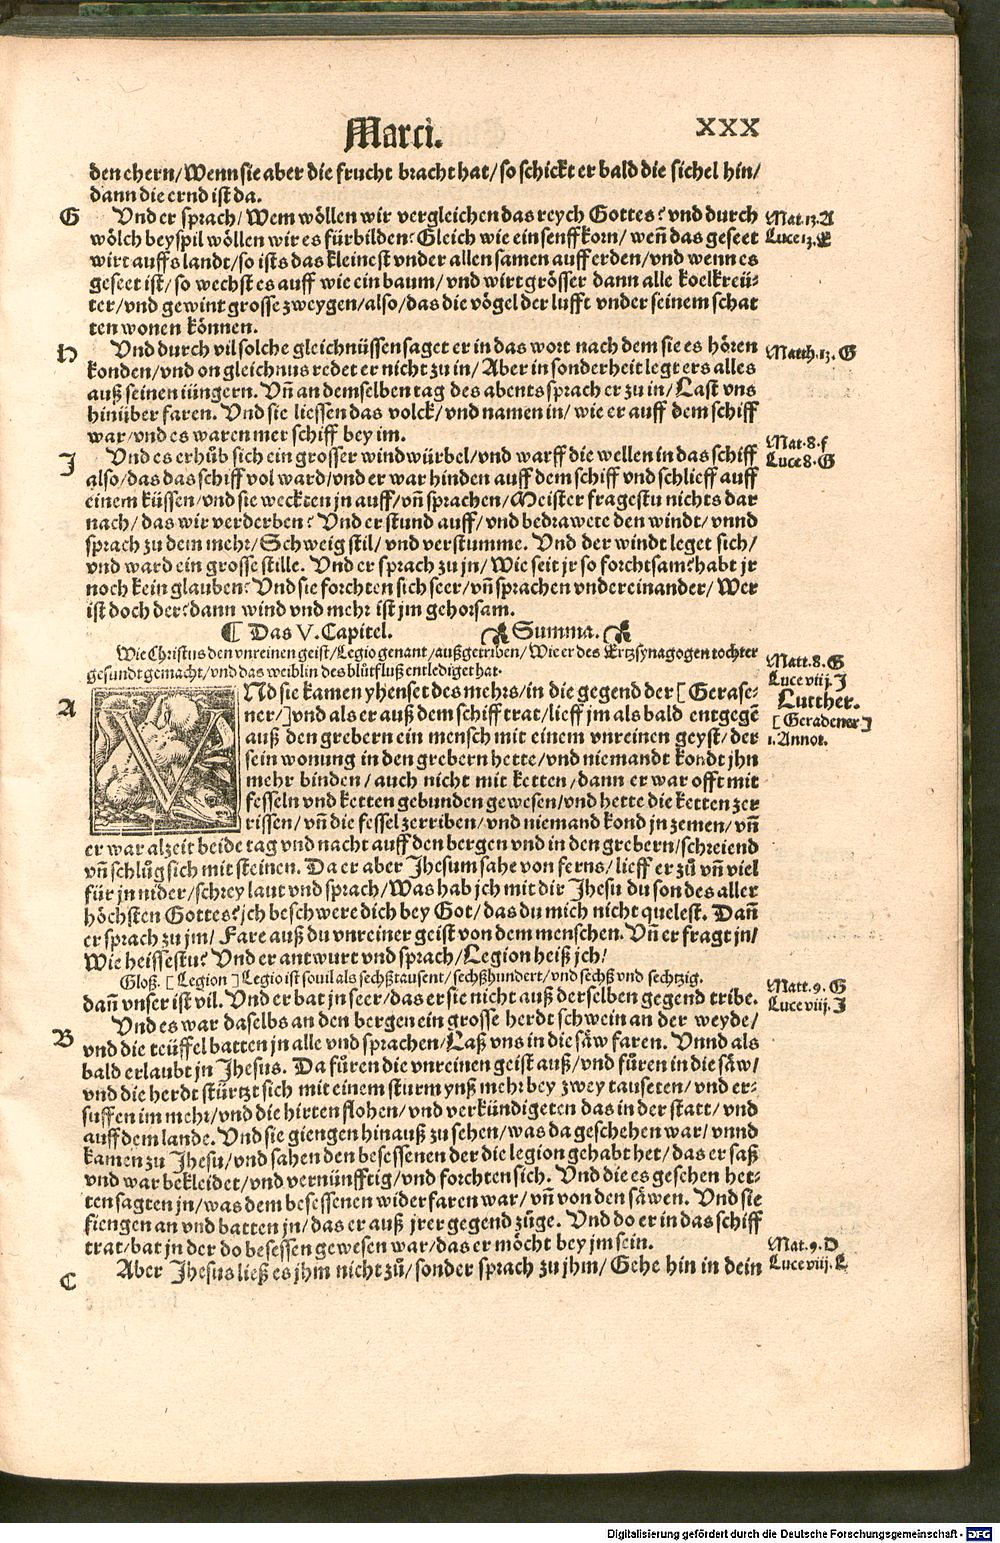 Marci.
XXX
den ehern/Wenn sie aber die frucht bracht hat/so schickt er bald die sichel hin/
dann die ernd ist da.
G
Vnd er sprach/Wem wöllen wir vergleichen das reych Gottes? vnd durch
Mat.13.A
wölch beyspil wöllen wir es fürbilden? Gleich wie ein senffkorn/ weñ das geseet
Luce 13.E
wirt auffs landt/so ists das kleinest vnder allen samen auff erden/vnd wenn es
geseet ist/so wechst es auff wie ein baum/vnd wirt grösser dann alle koelkreü-
ter/vnd gewint grosse zweygen/also/das die vögel der lufft vnder seinem schat
ten wonen können.
H
Vnd durch vil solche gleichnüssen saget er in das wort nach dem sie es hören
Matth.13.G
konden/vnd on gleichnus redet er nicht zu in/Aber in sonderheit legt ers alles
auß seinen iüngern. Vñ an demselben tag des abents sprach er zu in/Last vns
hinüber faren. Vnd sie liessen das volck/vnd namen in/wie er auff dem schiff
war/vnd es waren mer schiff bey im.
Mat.8.f
J
Vnd es erhůb sich ein grosser windwürbel/vnd warff die wellen in das schiff
Luce 8.G
also/das das schiff vol ward/vnd er war hinden auff dem schiff vnd schlieff auff
einem küssen/vnd sie weckten jn auff/vñ sprachen/Meister fragestu nichts dar
nach/das wir verderben? Vnd er stund auff/vnd bedrawete den windt/vnnd
sprach zu dem mehr/Schweig stil/vnd verstumme. Vnd der windt leget sich/
vnd ward ein grosse stille. Vnd er sprach zu jn/Wie seit jr so forchtsam? habt jr
noch kein glauben? Vnd sie forchten sich seer/vñ sprachen vndereinander/Wer
ist doch der? dann wind vnd mehr ist jm gehorsam.
¶ Das V. Capitel. Summa.
Wie Christus den vnreinen geist/Legio genant/außgetriben/Wie er des Ertzsynagogen tochter
Matt.8.G
gesundt gemacht/vnd das weiblin des blůtfluß entlediget hat.
Luce viij.J
A
VNd sie kamen yhenset des mehrs/in die gegend der [Gerase-
Lutther.
ner/]vnd als er auß dem schiff trat/lieff jm als bald entgegẽ
[Geradener]
auß den grebern ein mensch mit einem vnreinen geyst/der
1.Annot.
sein wonung in den grebern hette/vnd niemandt kondt jhn
mehr binden/auch nicht mit ketten/dann er war offt mit
fesseln vnd ketten gebunden gewesen/vnd hette die ketten zer
rissen/vñ die fessel zerriben/vnd niemand kond jn zemen/vñ
er war alzeit beide tag vnd nacht auff den bergen vnd in den grebern/schreiend
vñ schlůg sich mit steinen. Da er aber Jhesum sahe von ferns/lieff er zů vñ viel
für jn nider/schrey laut vnd sprach/Was hab jch mit dir Jhesu du son des aller
höchsten Gottes? jch beschwere dich bey Got/das du mich nicht quelest. Dañ
er sprach zu jm/Fare auß du vnreiner geist von dem menschen. Vñ er fragt jn/
Wie heissestu? Vnd er antwurt vnd sprach/Legion heiß jch/
Gloß. [Legion] Legio ist souil als sechßtausent/sechßhundert/vnd sechß vnd sechtzig.
Matt.9.G
dañ vnser ist vil. Vnd er bat jn seer/das er sie nicht auß derselben gegend tribe.
Luce viij.J
B
Vnd es war daselbs an den bergen ein grosse herdt schwein an der weyde/
vnd die teüffel batten jn alle vnd sprachen/Laß vns in die säw faren. Vnnd als
bald erlaubt jn Jhesus. Da fůren die vnreinen geist auß/vnd fůren in die säw/
vnd die herdt stürtzt sich mit einem sturm ynß mehr bey zwey tauseten/vnd er-
suffen im mehr/vnd die hirten flohen/vnd verkündigeten das in der statt/vnd
auff dem lande. Vnd sie giengen hinauß zu sehen/was da geschehen war/vnnd
kamen zu Jhesu/vnd sahen den besessenen der die legion gehabt het/das er saß
vnd war bekleidet/vnd vernünfftig/vnd forchten sich. Vnd die es gesehen het-
ten sagten jn/was dem besessenen widerfaren war/vñ von den säwen. Vnd sie
fiengen an vnd batten jn/das er auß jrer gegend züge. Vnd do er in das schiff
trat/bat jn der do besessen gewesen war/das er möcht bey jm sein.
Mat.9.D
C
Aber Jhesus ließ es jhm nicht zů/sonder sprach zu jhm/Gehe hin in dein
Luce viij.L
Digitalisierung gefördert durch die Deutsche Forschungsgemeinschaft - DFG